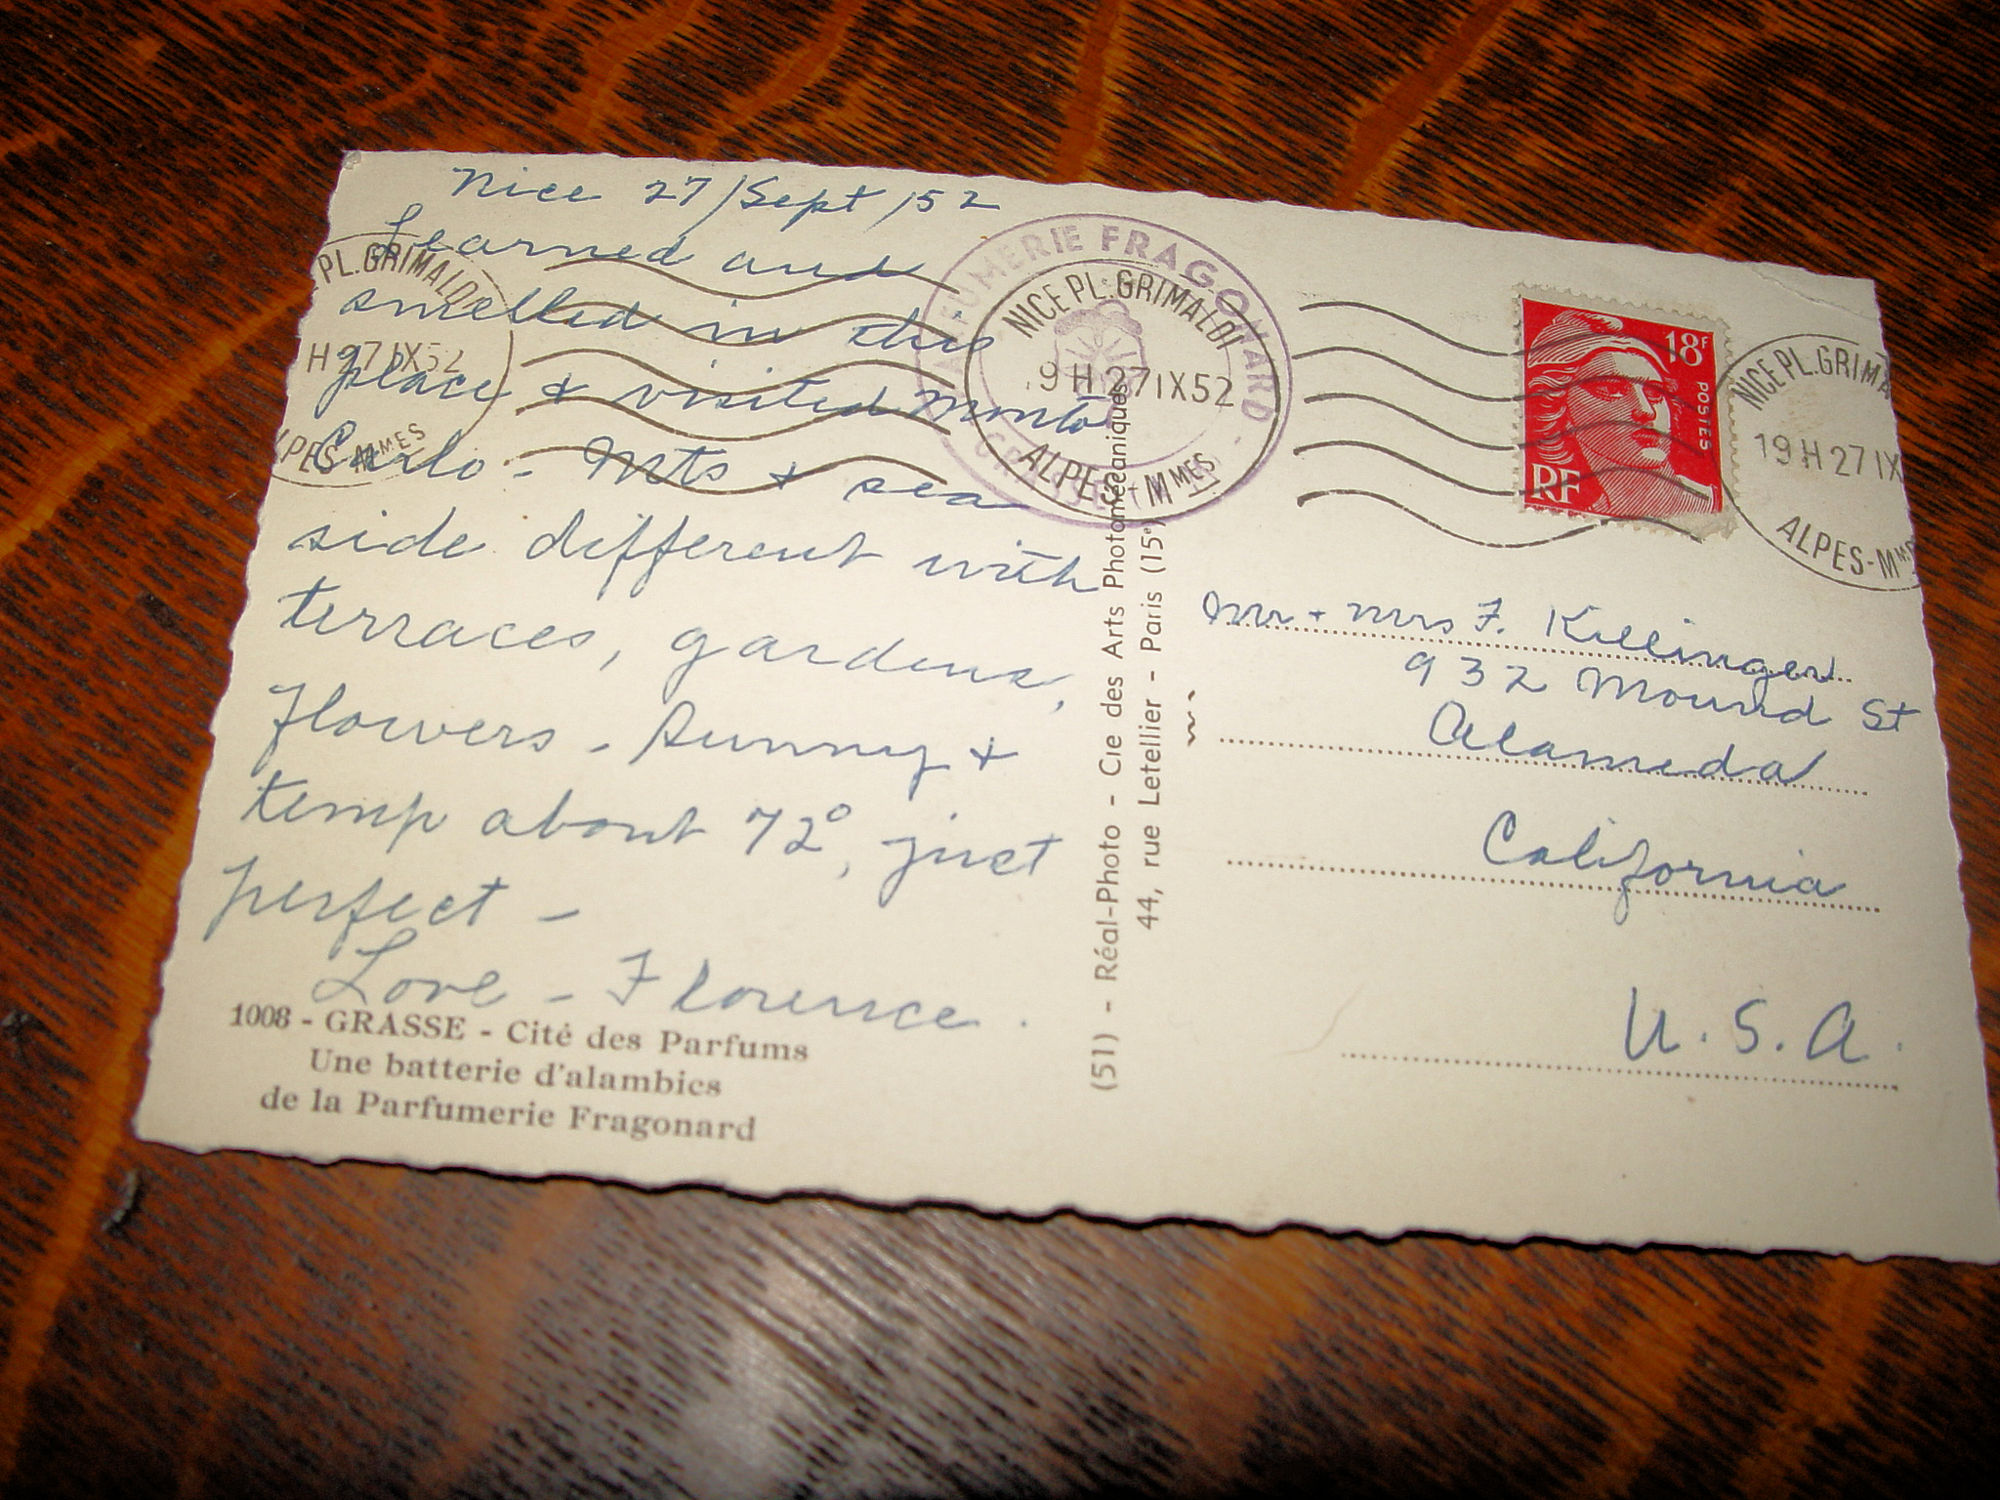 Nice 27/Sept/52
Learned and
smelled in this
place + visited Monte
Carlo - Mts + sea
side different with
terraces, gardens,
flowers - Sunny +
temp about 72°, just
perfect -
Love - Florence.
1008 - GRASSE - Cité des Parfums
Une batterie d'alambics
de la Parfumerie Fragonard
PL.GRIMALDI
H 27 IX 52
ALPES-MMES
PARFUMERIE FRAGONARD
GRASSE
NICE PL.GRIMALDI
19H 27 IX 52
ALPES-MMES
(51) - Réal-Photo - Cie des Arts Photomécaniques
44, rue Letellier - Paris (15e)
18F
POSTES
RF
NICE PL.GRIMA
19H 27 IX
ALPES-MMES
M.
Mr + Mrs F. Killinger
932 Mound St
Alameda
California
U.S.A.